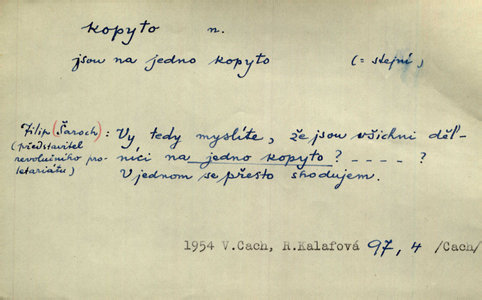 kopyto n.
jsou na jedno kopyto (= stejní)
Filip (Šaroch): Vy tedy myslíte, že jsou všichni děl-
(představitel
revolučního pro- níci na jedno kopyto? - - - - ?
letariátu) V jednom se přesto shodujem.
1954 V.Cach, R.Kalafová 97, 4 /Cach/